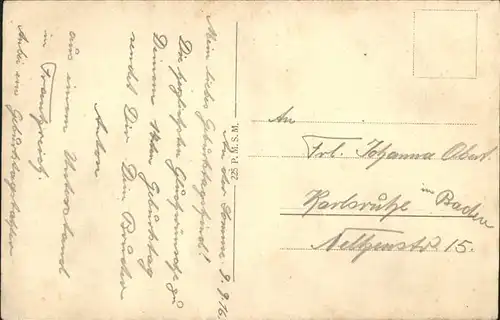 An der Somme 9.9.16.
Mein liebes Geburtstagskind!
Die herzlichsten Glückwünsche zu
Deinem 14ten Geburtstag
sendet Dir Dein Bruder
Anton
aus einem Unterstand
in Frankreich.
Anbei eine Geburtstagskarte
225 P. M. S. M.
An
Frl. Johanna Obert.
Karlsruhe in Baden
Nelkenstr. 15.